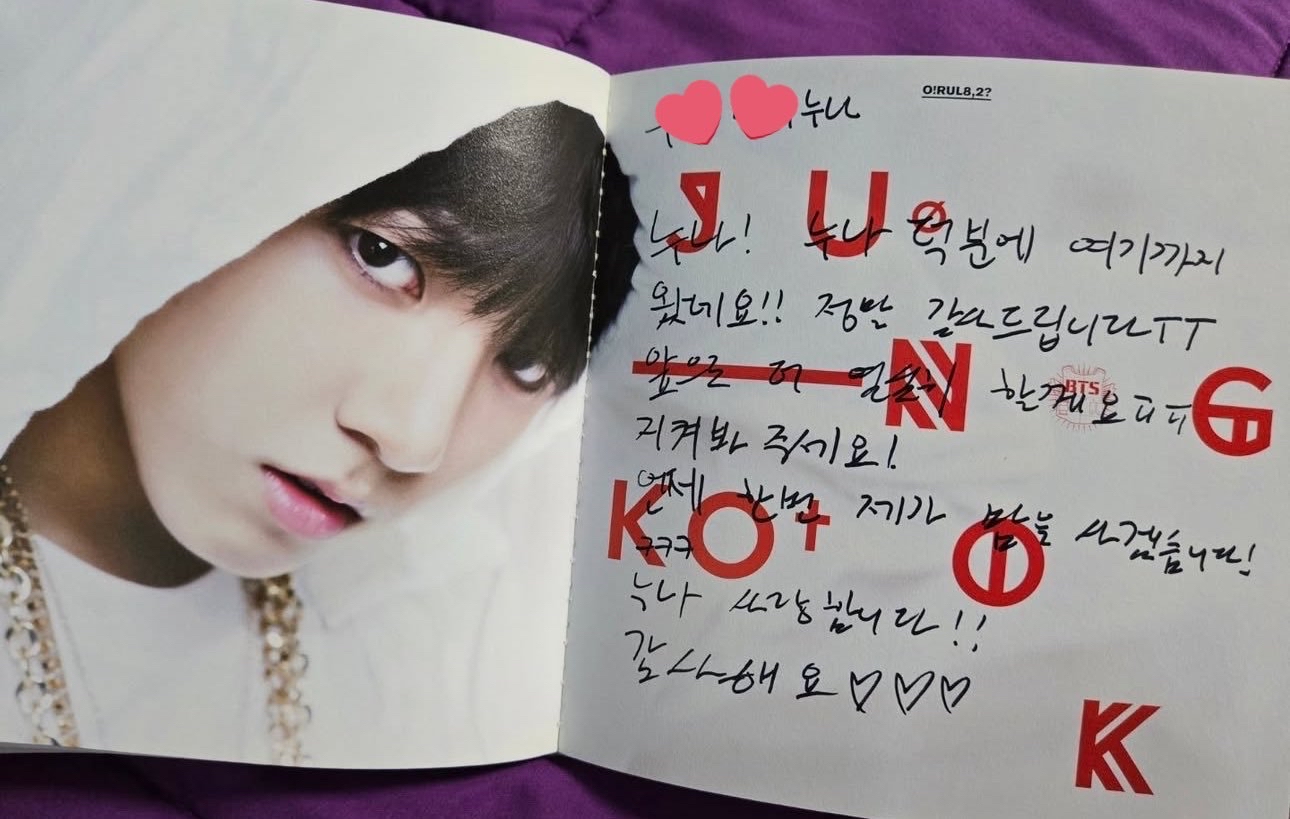 O!RUL8,2?
누나
J U
누나! 누나 덕분에 여기까지
왔네요!! 정말 감사드립니다TT
앞으로 더 열심히 할께요
N BTS G
지켜봐 주세요!
언제 한번 제가 밥을 사겠습니다!
K O
ㅋㅋㅋ
누나 사랑합니다!!
감사해요♡♡♡
K